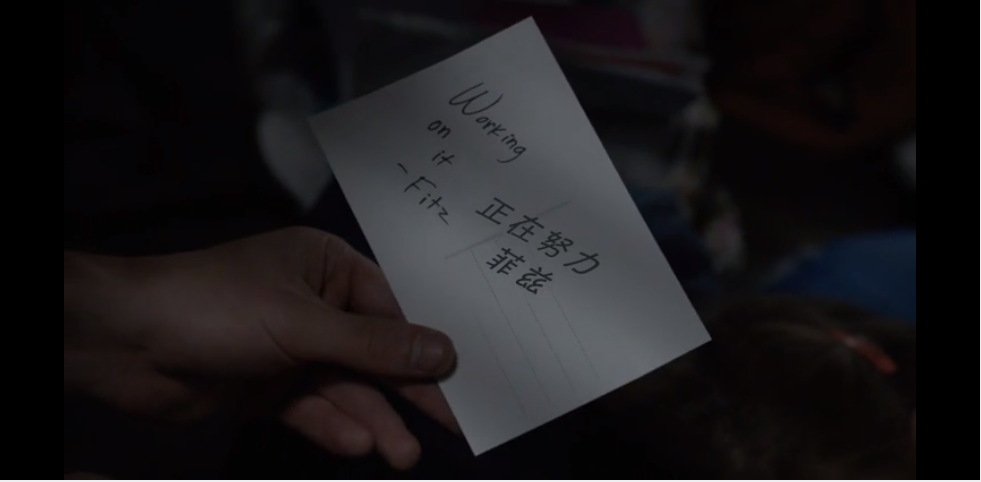 Working
on
it
- Fitz
正在努力
菲兹